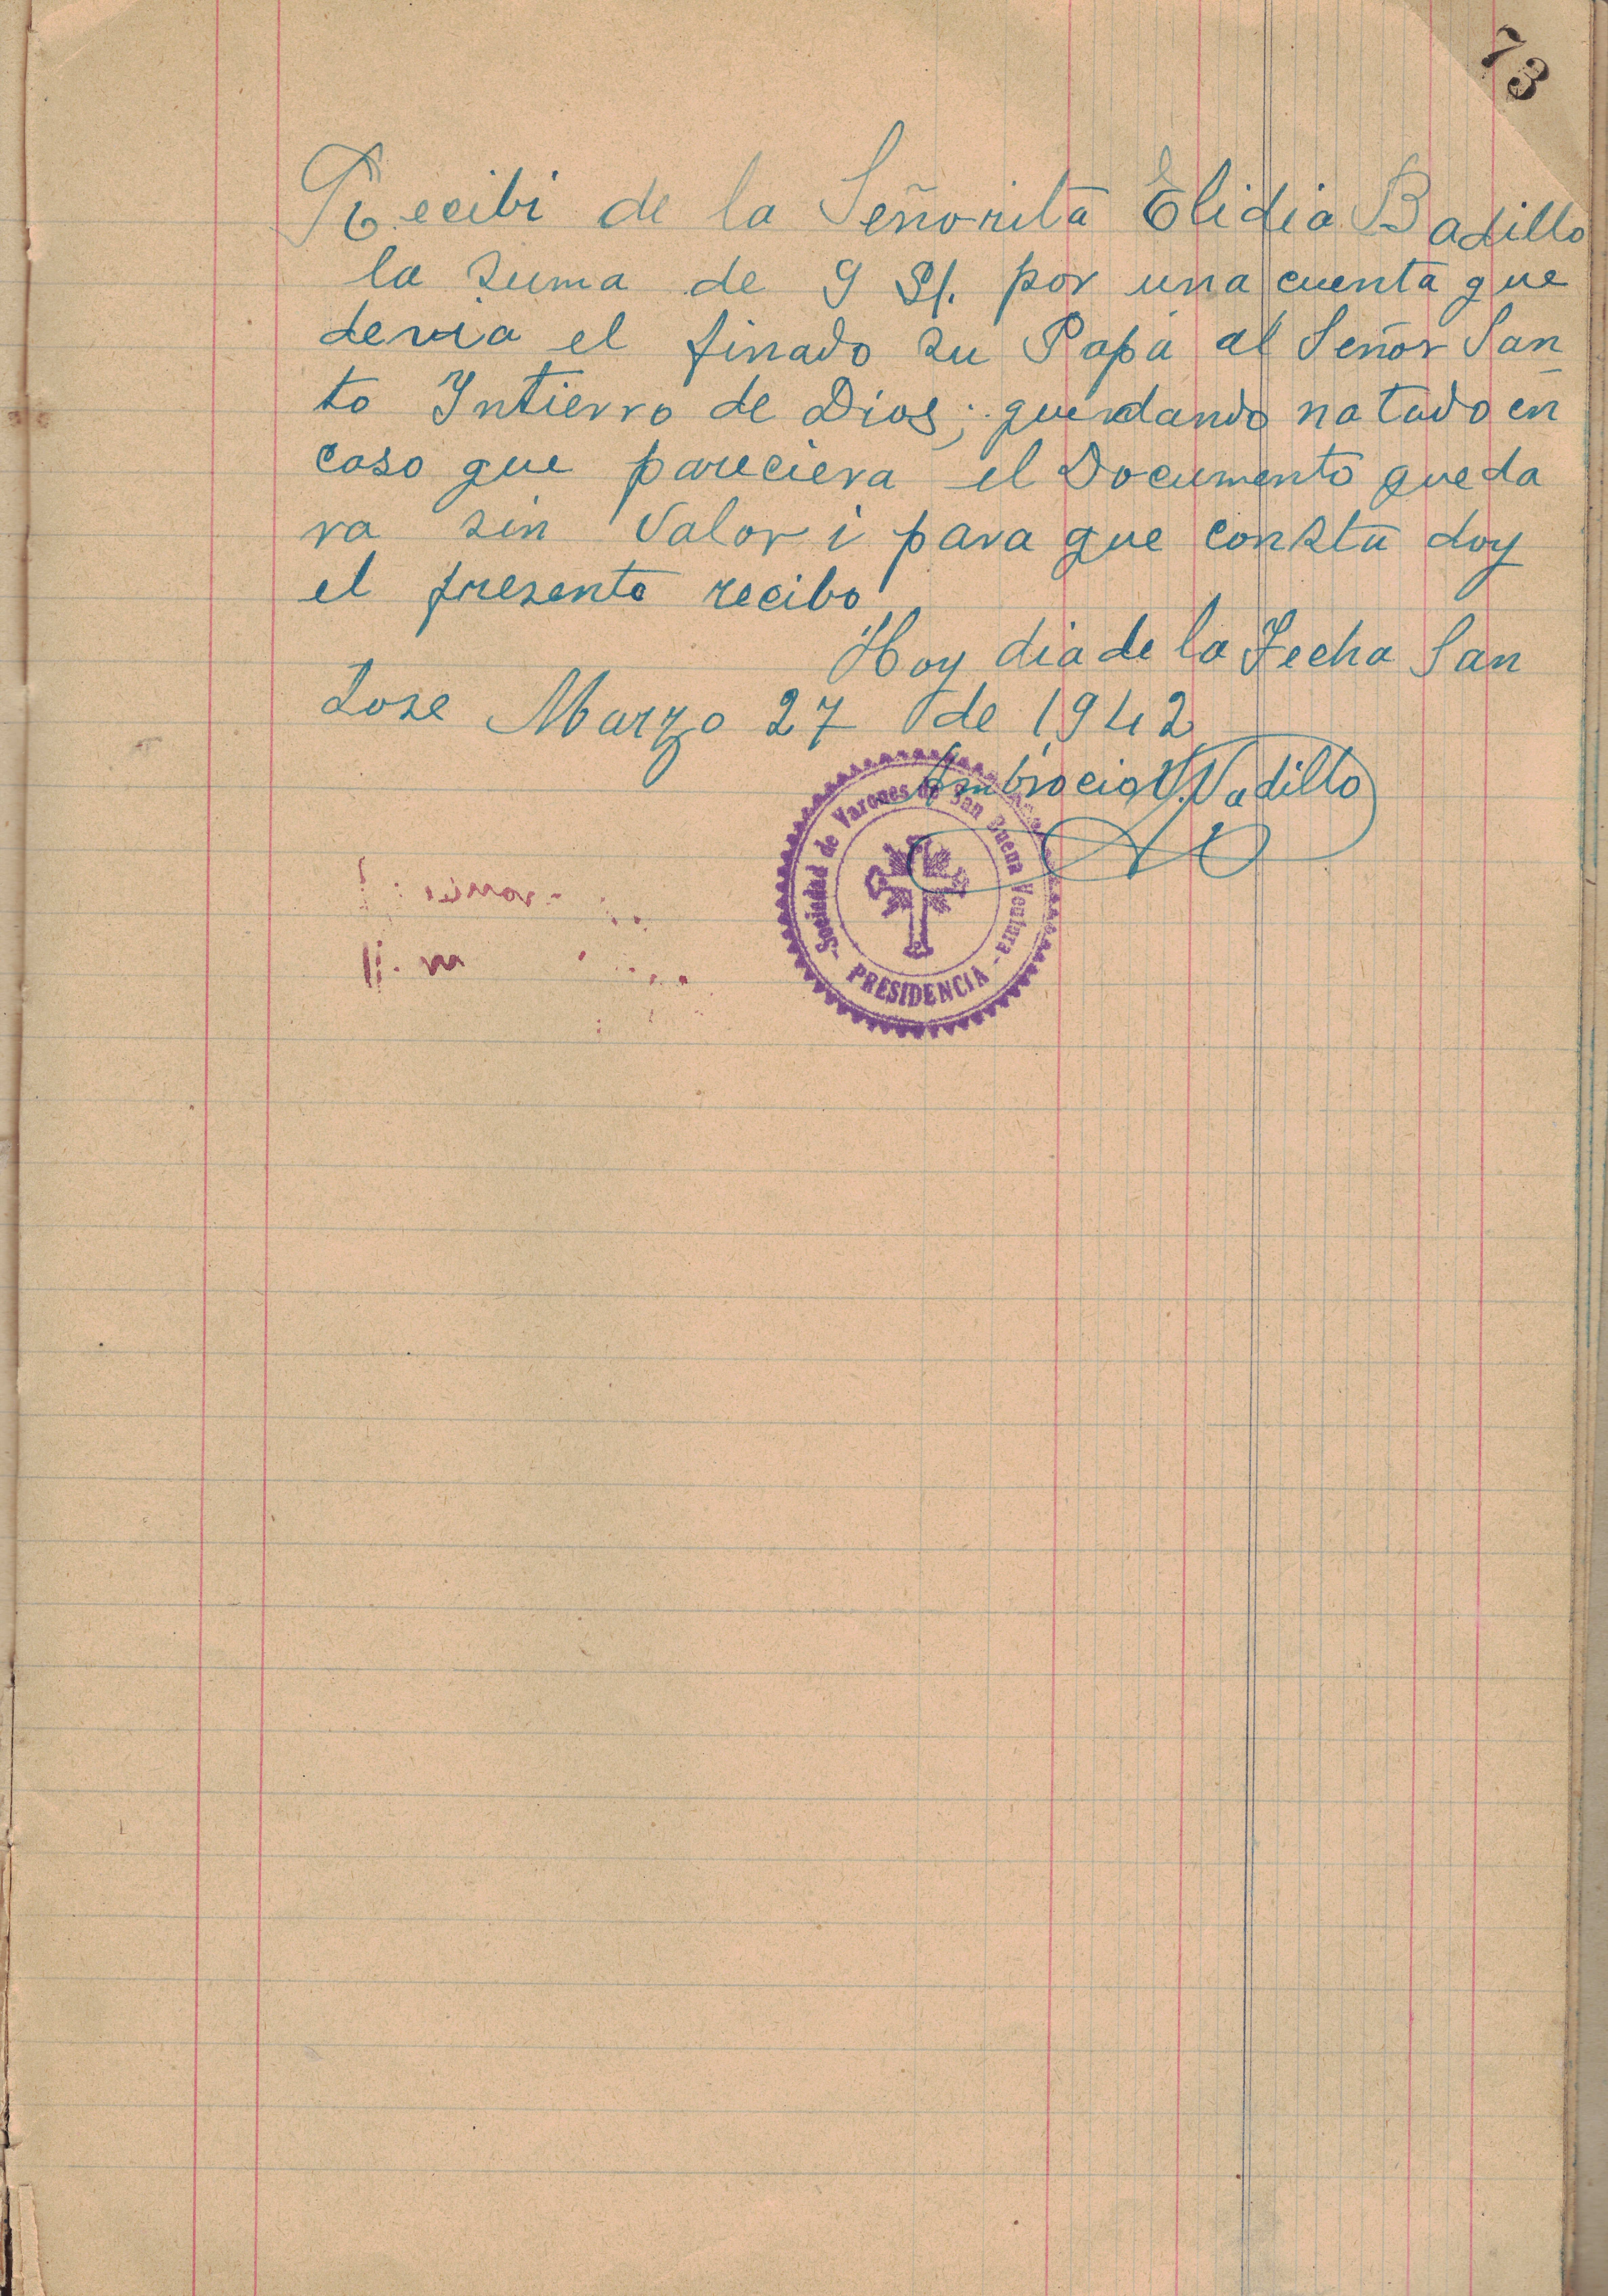 73
Recibi de la Señorita Elidia Badillo
la suma de 9 S/. por una cuenta que
devia el finado su Papa al Señor San
to Intierro de Dios; quendando notado en
caso que pareciera el Documento queda
ra sin Valor i para que consta doy
el presente recibo
Hoy dia de la Fecha San
Jose Marzo 27 de 1942
Ambrocio V. Vadillo
-Sociedad de Varones de San Buena Ventura-
PRESIDENCIA